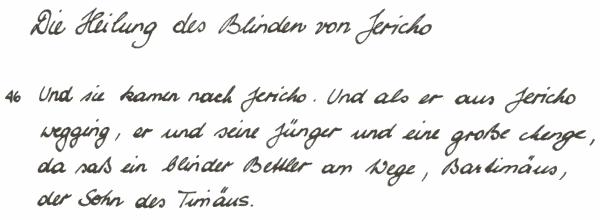 Die Heilung des Blinden von Jericho
46 Und sie kamen nach Jericho. Und als er aus Jericho
wegging, er und seine Jünger und eine große Menge,
da saß ein blinder Bettler am Wege, Bartimäus,
der Sohn des Timäus.